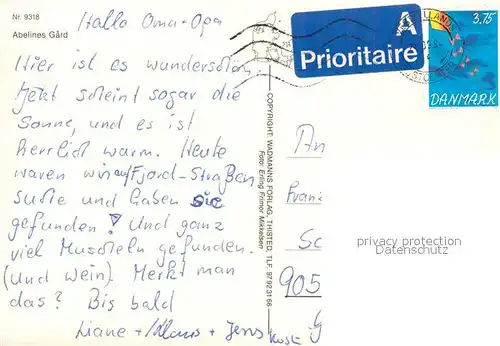 Nr. 9318
Abelines Gård
Hallo Oma + Opa
Hier ist es wunderschön.
Jetzt scheint sogar die
Sonne, und es ist
herrlich warm. Heute
waren wir auf Fjord-Straßen
suche und haben sie
gefunden! Und ganz
viel Muscheln gefunden.
(Und Wein). Merkt man
das? Bis bald
Liane + Klaus + Jens
COPYRIGHT: WADMANNS FORLAG, THISTED. TLF. 97 92 31 66
Foto: Erling Frimor Mikkelsen
A
Prioritaire
3.75
DANMARK
An
Sc
905
privacy protection
Datenschutz